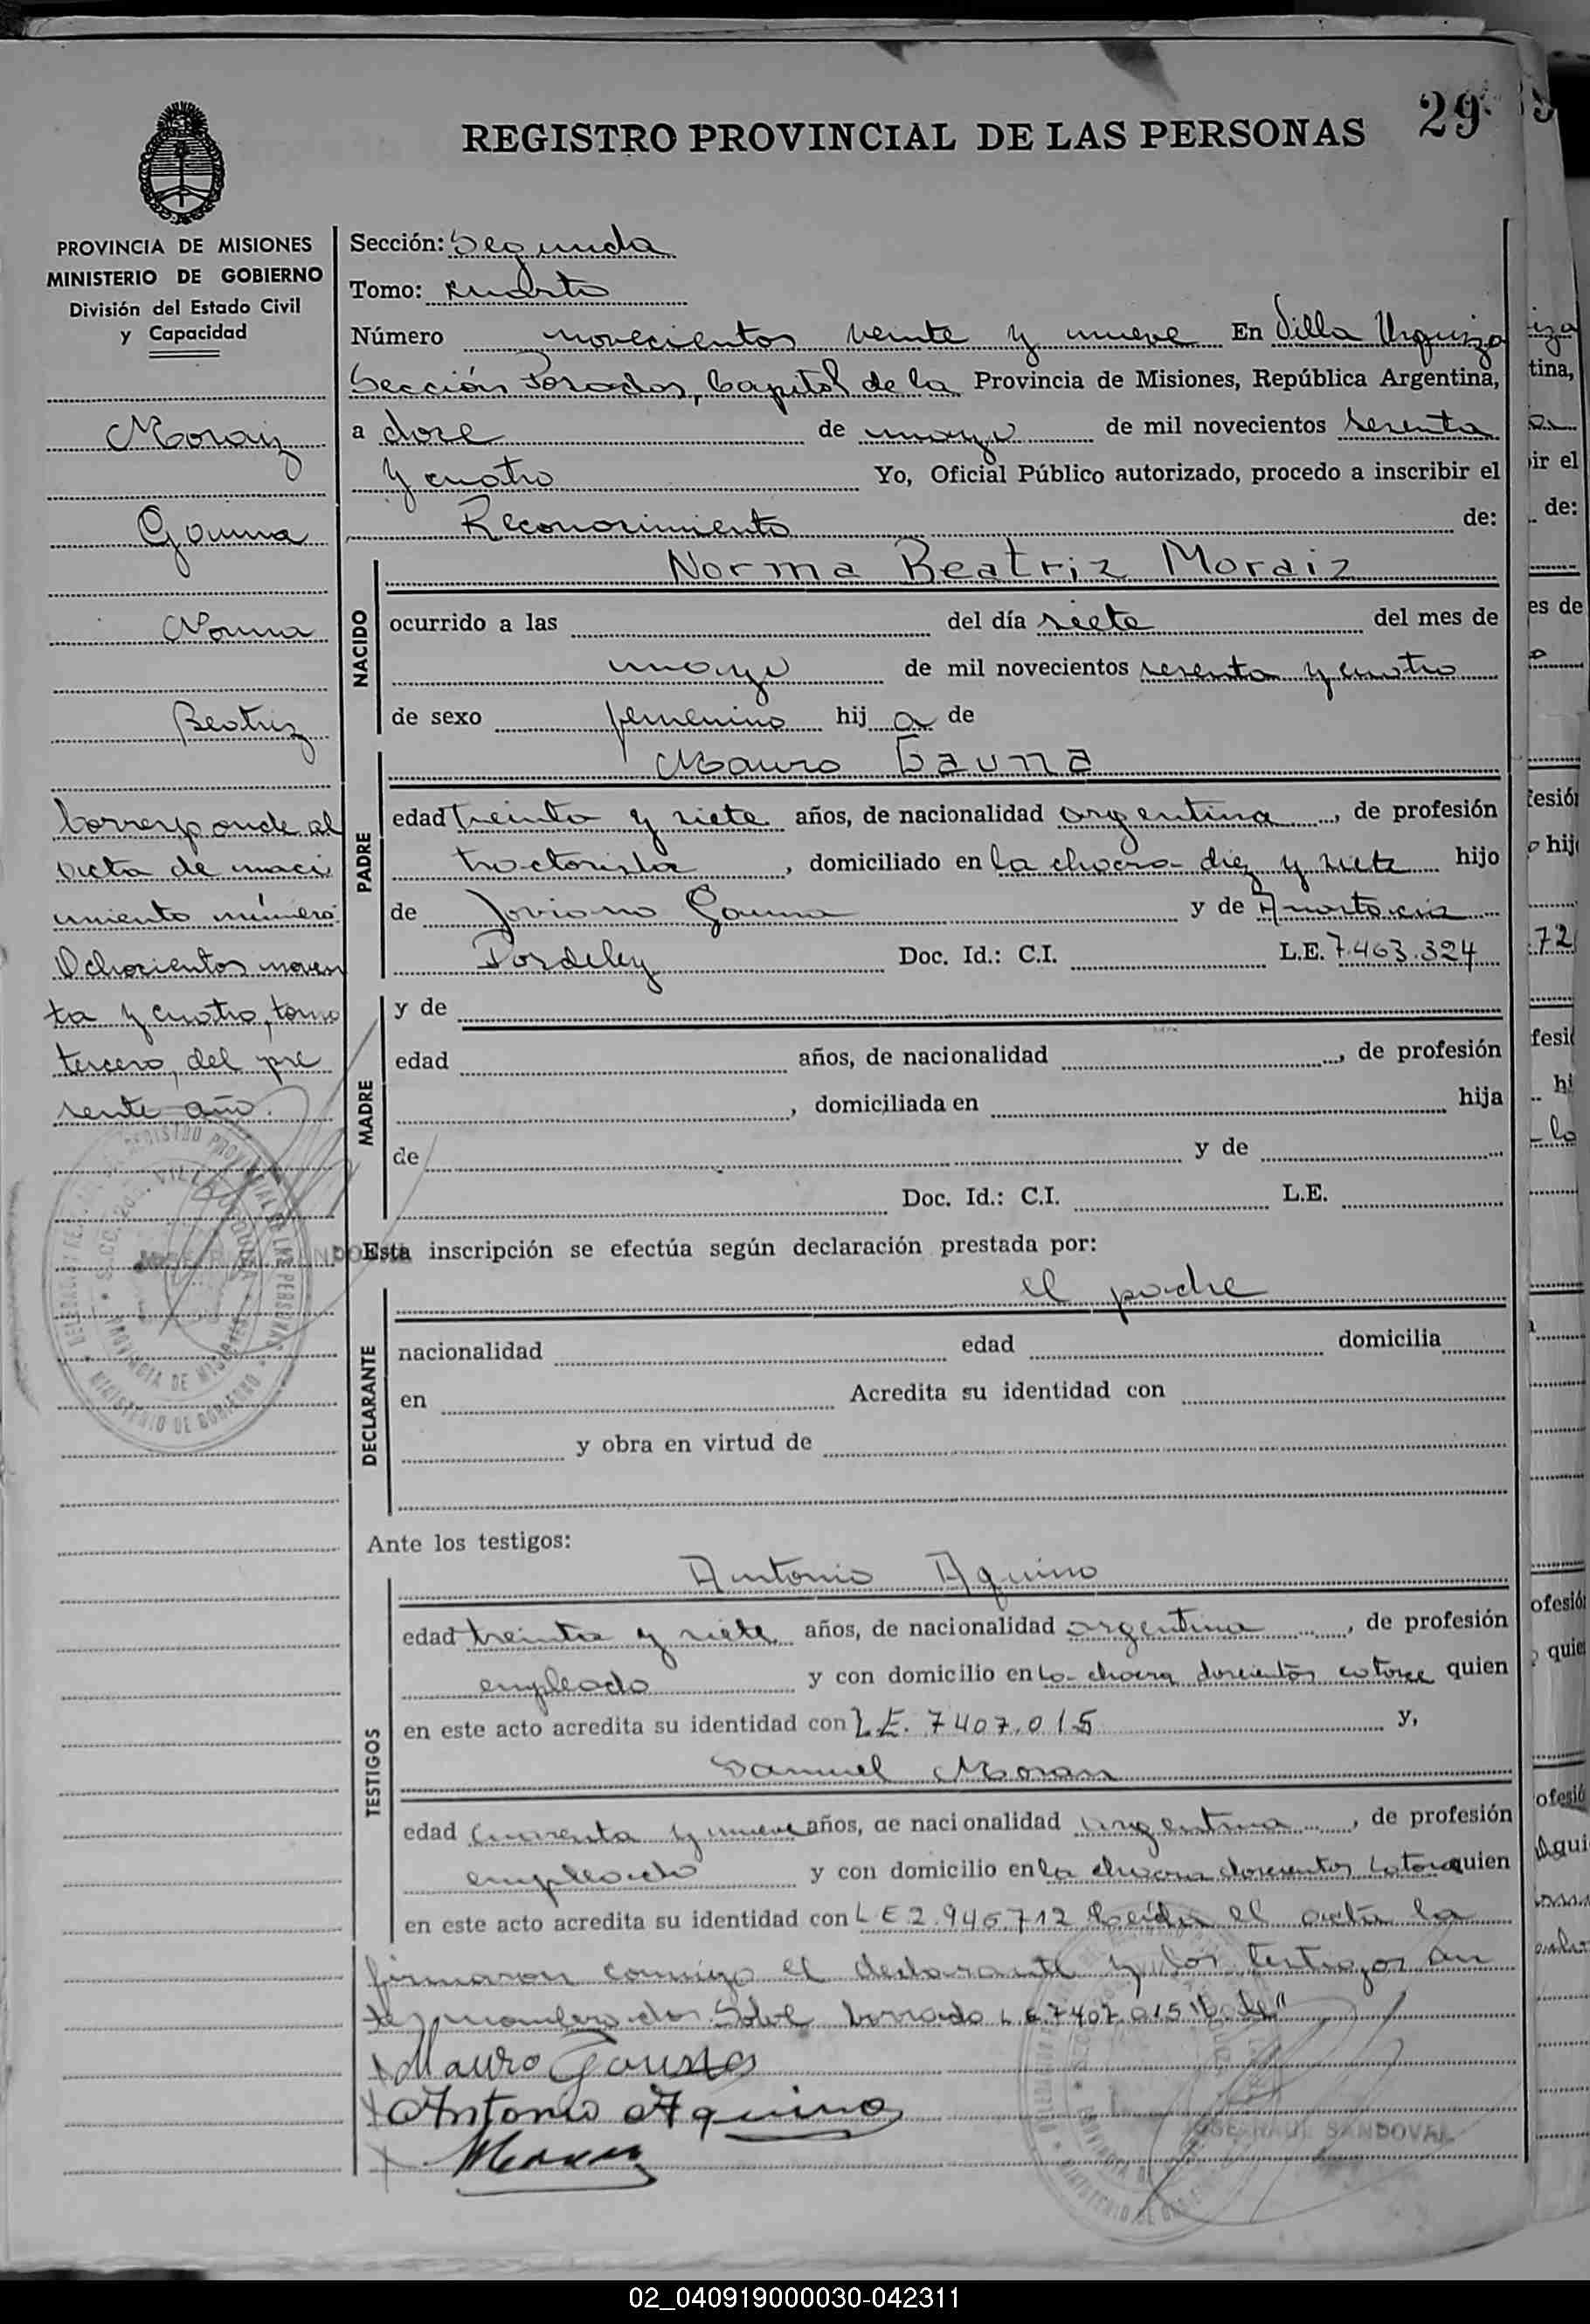 29
REGISTRO PROVINCIAL DE LAS PERSONAS
PROVINCIA DE MISIONES
MINISTERIO DE GOBIERNO
División del Estado Civil
y Capacidad
Moraiz
Gauna
Norma
Beatriz
Corresponde al
acta de naci
miento número
Ochocientos noven
ta y cuatro, tomo
tercero, del pre
sente año.
Sección: Segunda
Tomo: cuarto
Número novecientos veinte y nueve En Villa Urquiza
Sección Posadas, Capital de la Provincia de Misiones, República Argentina,
a doce de mayo de mil novecientos sesenta
y cuatro Yo, Oficial Público autorizado, procedo a inscribir el
Reconocimiento de:
NACIDO
Norma Beatriz Moraiz
ocurrido a las del día siete del mes de
mayo de mil novecientos sesenta y cuatro
de sexo femenino hij a de
PADRE
Mauro Gauna
edad treinta y siete años, de nacionalidad argentina, de profesión
tractorista, domiciliado en la chacra diez y siete hijo
de Joviano Gauna y de
Doc. Id.: C.I. L.E. 7.463.324
MADRE
y de
edad años, de nacionalidad , de profesión
, domiciliada en hija
de y de
Doc. Id.: C.I. L.E.
Esta inscripción se efectúa según declaración prestada por:
DECLARANTE
el padre
nacionalidad edad domicilia
en Acredita su identidad con
y obra en virtud de
Ante los testigos:
TESTIGOS
Antonio Aquino
edad treinta y siete años, de nacionalidad argentina, de profesión
empleado y con domicilio en la chacra doscientos catorce quien
en este acto acredita su identidad con L.E. 7407.015 y,
Samuel Moran
edad cuarenta y nueve años, de nacionalidad argentina, de profesión
empleado y con domicilio en la chacra doscientos catorce quien
en este acto acredita su identidad con L E 2.946.712 Leída el acta la
firmaron conmigo el declarante y los testigos an
tes nombrados. Sobre borrado L.E. 7407.015
Mauro Gauna
Antonio Aquino
Moran
JOSE RAUL SANDOVAL
02_040919000030-042311